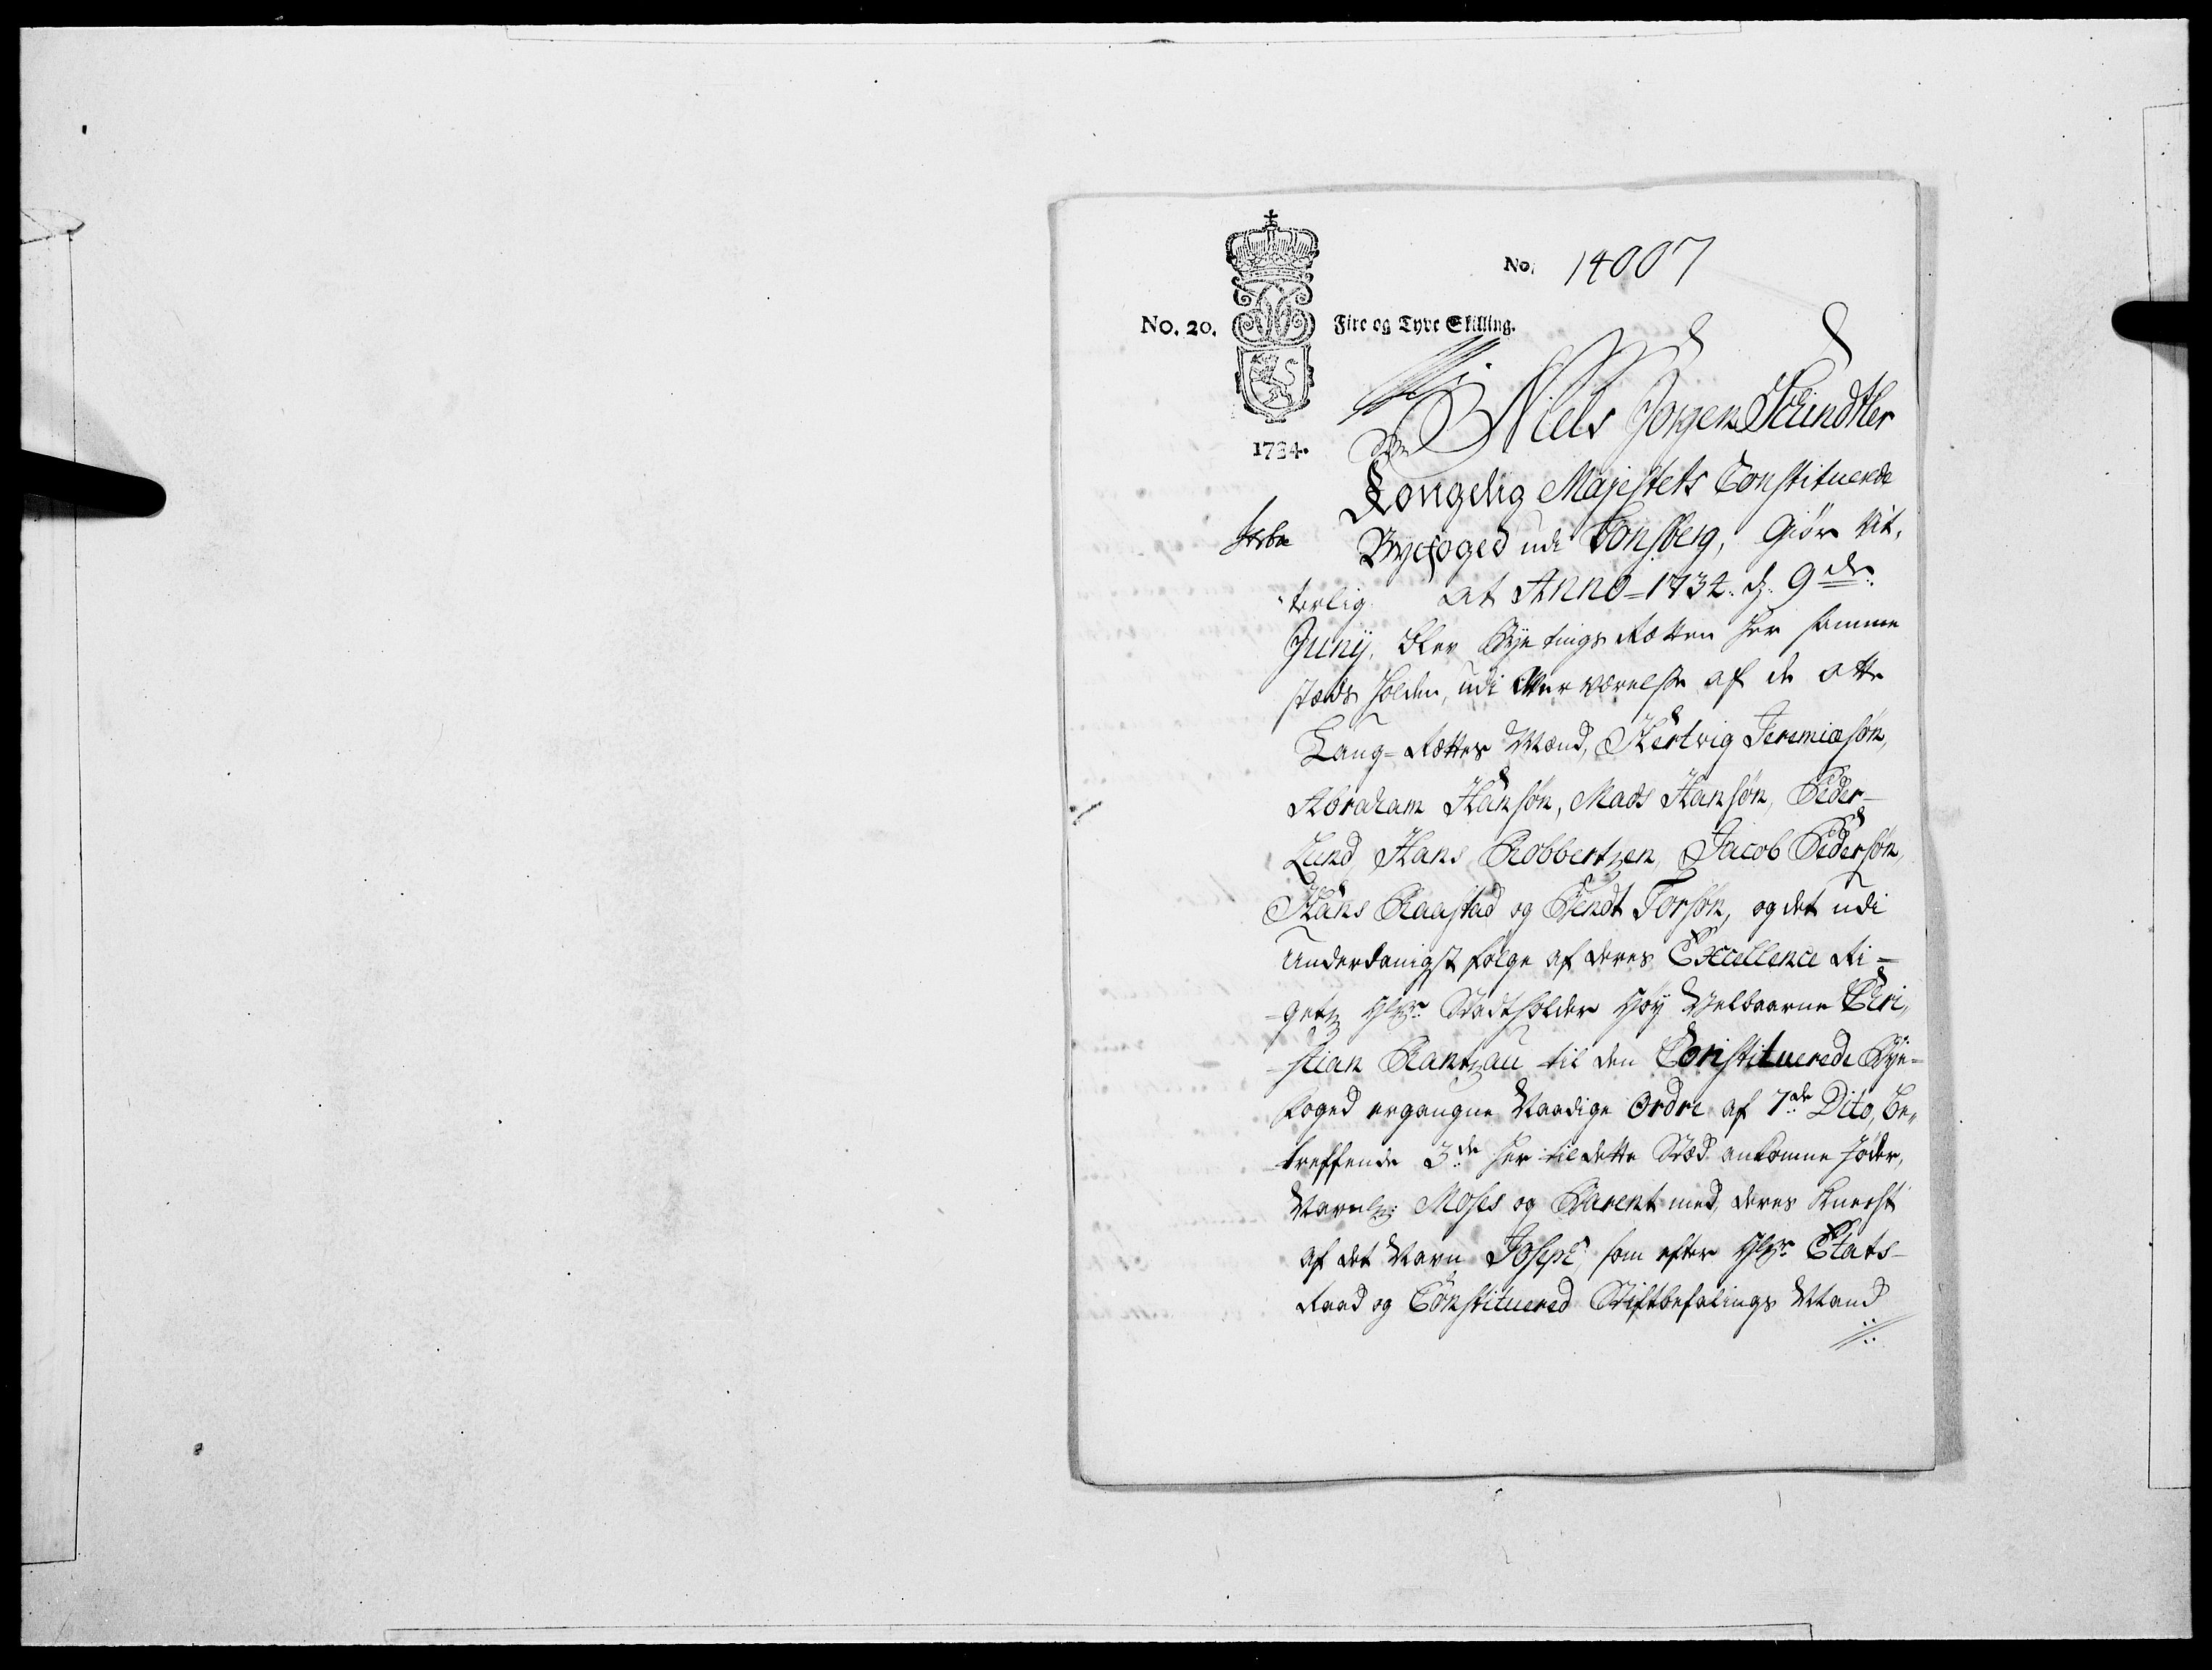 No. 14007
No. 20. Fire og Tyve Skilling.
1734.
Niels Jørgen
Kongelig Majestets Constituerede
Byefoged udi Tonsberg, Giør Vit-
terlig at Anno 1734. d. 9de
Junij, blev Bye tings Retten her samme
steds holden, udi Overværelse af de otte
Laug-Rettes Mænd, Hertvig Jeremiæsøn,
Abraham Hansøn, Mads Hansøn, Peder
Lund, Hans Robbertzen, Jacob Pedersøn,
Hans Raastad og Bendt Torsøn, og det udi
Underdanigst følge af deres Excellence Ri-
getz Hr. Stadtholder Høy Velbaarne Chri-
stian Rantzau til den Constituerede Bye-
foged ergangne Naadige Ordre af 7de Dito, be-
treffende 3de her til dette Stæd ankomne Jøder,
Navnl: Moses og Barent med deres Knecht
af det Navn Joseph, som efter Hr. Etats-
Raad og Constituered Stiftbefalings Mand